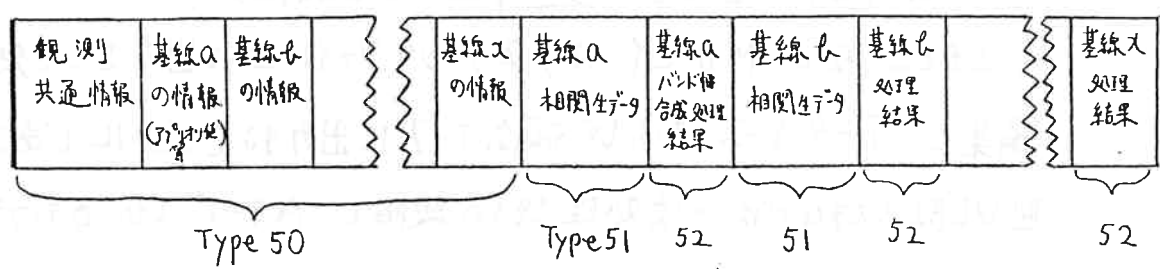 観測
共通情報
基線a
の情報
(アプリオリ値)
等
基線b
の情報
基線x
の情報
基線a
相関生データ
基線a
バンド幅
合成処理
結果
基線b
相関生データ
基線b
処理
結果
基線x
処理
結果
Type 50
Type 51
52
51
52
52